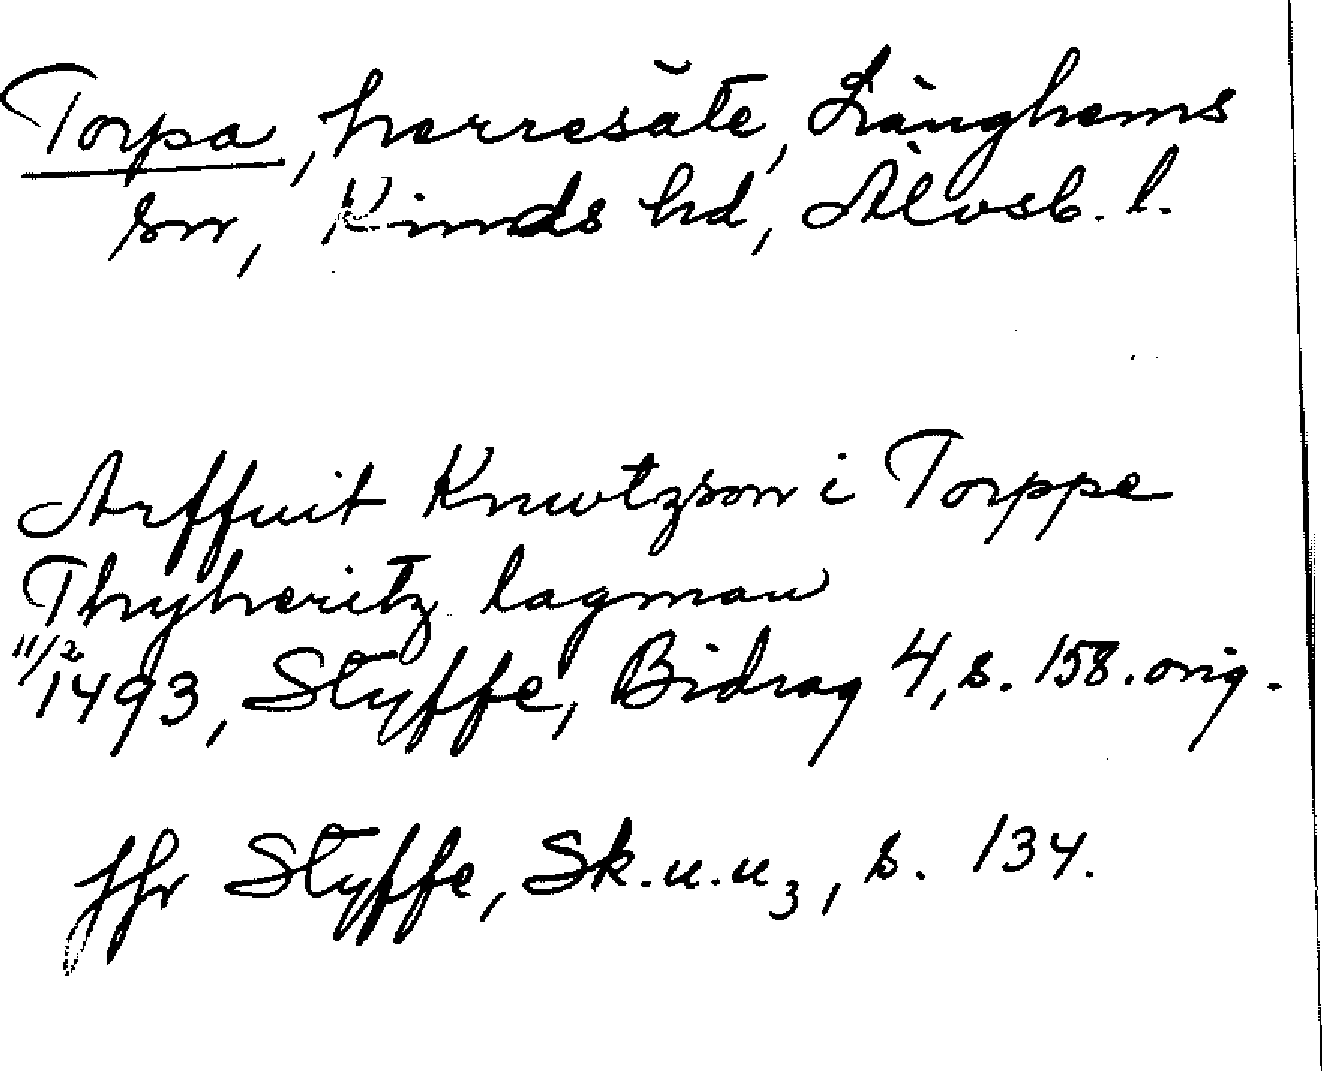 Torpa, herresäte, Länghems
sn, Kinds hd, Älvsb. l.
Arffuit Knwtzson i Torppe
Thyheritz lagman
11/2
1493, Styffe, Bidrag 4, s. 158. orig.
Jfr Styffe, Sk.u.u3, s. 134.